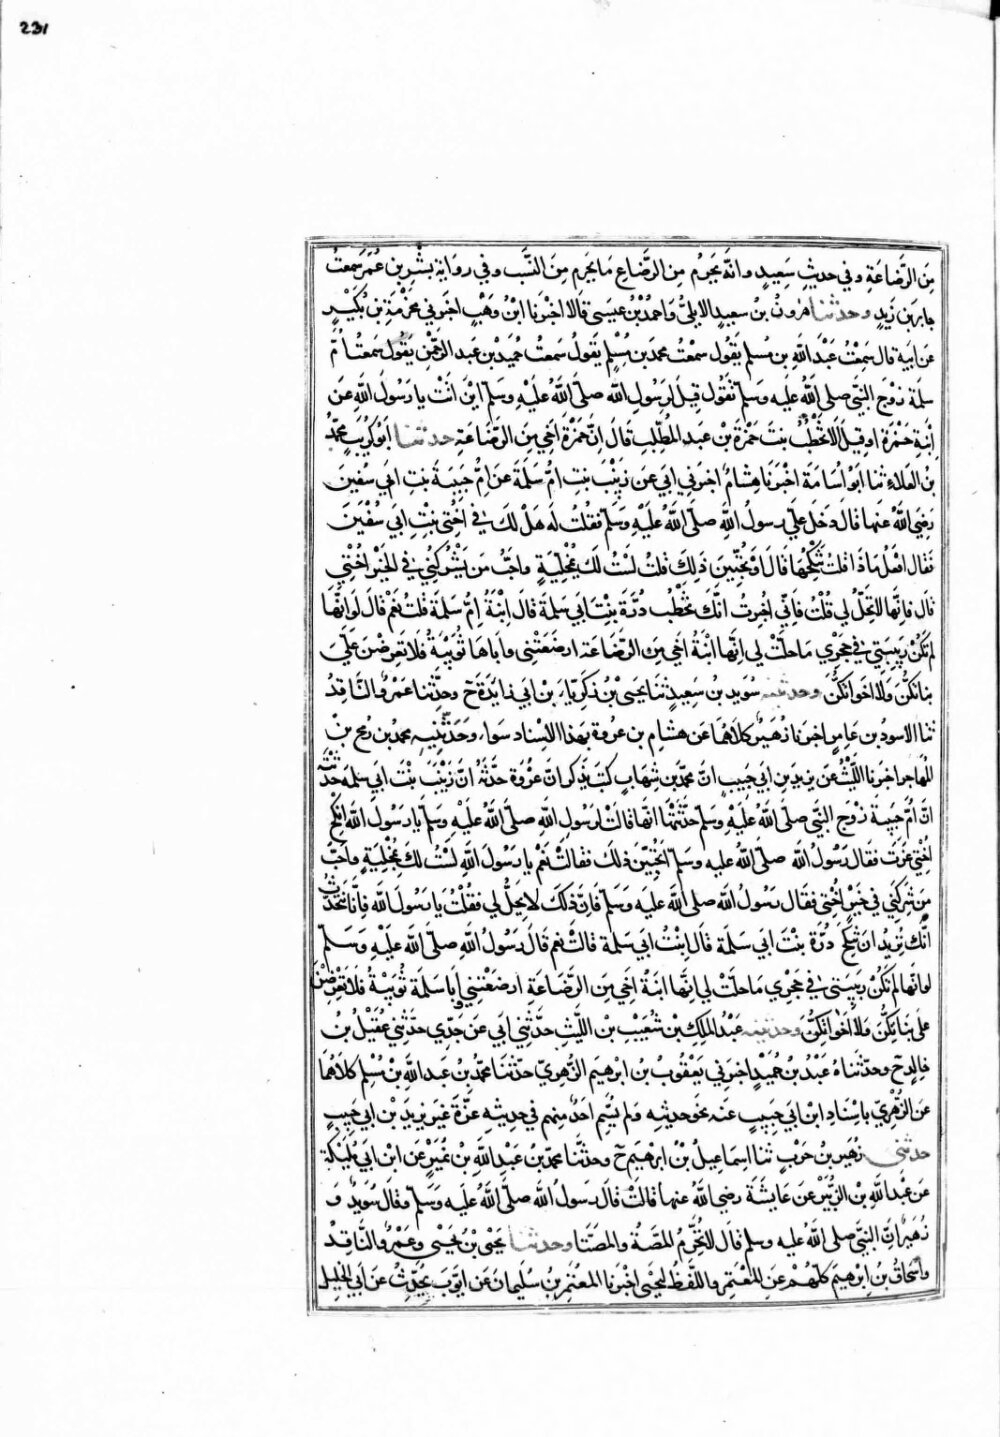 231
مِنَ الرَّضَاعَةِ وفي حديثِ سَعِيدٍ وانَّه يَحْرُمُ مِنَ الرَّضَاعِ مَا يَحرم مِنَ النَّسَب وفي رواية بشْرِ بن عُمَرَ سَمِعْتُ
جابر بن زَيدٍ وحدثنا هرونُ بن سعيدٍ الايليُّ وَاحمدُ بْنُ عيسى قالا اخبَرَنا ابْنُ وَهْبٍ اخبرَني مخرمَة بْنُ بُكَيْرٍ
عَن ابيهِ قال سَمِعْتُ عَبْدَ اللهِ بن مُسلم يَقُول سمعْتُ محمدَ بن مُسْلم يَقول سَمعتُ حُمَيدَ بن عبد الرَّحمٰن يَقول سَمعتُ أمَّ
سَلمة زوْج النبيّ صلى اللهُ عليه وسَلّم تَقُول قيلَ لرسُولِ الله صلّى اللهُ عَلَيْهِ وسَلّم اين انْتَ يا رسُول اللهِ عَن
ابْنَةِ حَمْزةَ او قيلَ الا تَخْطُبُ بنتَ حَمْزةَ بْن عبد المُطَّلِب قَالَ انَّ حمْزةَ اخي مِنَ الرَّضَاعَة حدثنا ابُو كُرَيْب محمّدُ
بْن العَلاءِ ثنا ابُو اُسَامَة اخبَرنا هِشَامٌ اخبرَني ابي عَن زَيْنَبَ بنتِ امّ سَلمَة عَن امّ حَبيبةَ بنتِ ابي سُفين
رَضيَ اللهُ عنها قالَت دَخَلَ عليَّ رسولُ اللهِ صلّى اللهُ عَلَيْه وسَلّم فقُلتُ له هَلْ لكَ في اُخْتي بنتِ ابي سُفْيَن
فَقال افْعَلُ مَاذَا قلتُ تَنْكِحُهَا قالَ اوَتُحِبِّينَ ذلِكَ قلتُ لسْتُ لكَ بمُخْلِيَةٍ واحَبُّ مَن يَشْرَكُني في الخَيْرِ اُخْتي
قالَ فانَّها لا تَحلُّ لي قُلْتُ فَانّي اُخْبِرْتُ انَّكَ تَخْطُبُ دُرَّة بنْتَ ابي سَلمَةَ قالَ ابْنَةُ امّ سَلمةَ قلتُ نَعَمْ قال لَو انَّها
لم تَكُنْ رَبيبَتي في حَجْري مَا حلّتْ لي انَّها ابْنةُ اخي مِنَ الرّضَاعَة ارضَعَتْني واباهَا ثُوَيْبَةُ فلَا تَعْرِضْنَ عَلَيَّ
بَنَاتكُنَّ ولَا اخَواتكُنَّ وحدثنيه سُوَيد بن سَعيدٍ ثنا يَحيى بْنُ زكريّاءَ بن ابي زايدَةَ ح وحدَّثنا عَمْرٌو النّاقدُ
ثنا الاسودُ بن عَامرٍ اخبرَنا زُهَيرٌ كلَاهُمَا عَن هشام بن عُروةَ بهَذا الاسناد سَواء وَحدَّثنيه محمدُ بن رُمح بن
المُهاجر اخبرَنا اللَّيْثُ عَن يزيدَ بن ابي حَبيبٍ انَّ محمدَ بن شهَاب كتَبَ يَذكر انَّ عُرْوةَ حدَّثَهُ انَّ زَيْنَبَ بنْتَ ابي سلمة حدَّثَتْهُ
انَّ امَّ حَبيبةَ زوْجَ النَّبيّ صلّى اللهُ عَلَيْهِ وسَلّم حدَّثتْهَا انّهَا قالَتْ لرَسُولِ اللهِ صلّى اللهُ عَلَيْهِ وَسلّم يا رَسُولَ اللهِ انْكِحْ
اُخْتي عَزَّة فَقال رَسُولُ اللهِ صلّى اللهُ عليه وسلّم اتُحبّينَ ذلكَ فقالَتْ نَعَمْ يا رسُولَ اللهِ لسْتُ لك بمُخْلِيَةٍ واحَبُّ
مَن شَركَني في خَيْرٍ اُخْتي فقال رَسُولُ الله صلّى اللهُ عَلَيه وسَلّم فَانَّ ذلكَ لا يحِلُّ لي فقُلْتُ يَا رَسُولَ الله فانَّا نَتَحدَّثُ
انَّكَ تُريدُ ان تَنْكحَ دُرَّةَ بنْتَ ابي سَلمَة قالَ ابنْتُ ابي سَلمة قالتْ نعم قَالَ رَسُولُ اللهِ صلّى اللهُ عَلَيْهِ وسَلّم
لو انّها لم تَكُنْ رَبيبَتي في حَجْري مَا حلّتْ لي انَّها ابنَةُ اخي مِنَ الرَّضاعَةِ ارضَعتْني وابا سَلمةَ ثُوَيْبَةُ فلا تَعْرضْنَ
علَيَّ بَنَاتِكُنَّ ولا اخَوَاتكُنَّ وحدثنيه عَبْدُ المَلِك بن شُعَيْبِ بن اللَّيْث حدَّثَني ابي عَن جَدّي حَدَّثني عُقَيْلُ بن
خَالِدٍ ح وحدّثناهُ عَبْدُ بن حُمَيدٍ اخبرني يَعْقُوبُ بن ابْرهيم الزُّهريّ حدَّثنَا محمَّدُ بن عَبد الله بْن مُسْلم كلَاهُمَا
عَن الزُّهْرِيّ باسْنَاد ابن ابي حَبيبٍ عنه نحو حديثه ولم يُسَمِّ احَدٌ منهم في حديثه عَزَّةَ غَير يزيدَ بْن ابي حَبيبٍ
حدثني زهَيرُ بن حَرْبٍ ثنا اسمَاعيلُ بنُ ابرهيمَ ح وحدَّثَنا محمدُ بن عَبْدِ اللهِ بن نُمَيْرٍ عَن ابن ابي مُلَيْكة
عَن عَبْد اللهِ بن الزُّبَيْر عَن عَايشَةَ رضي اللهُ عنها قالَتْ قالَ رَسُولُ الله صلّى اللهُ عَليه وَسَلّم وقالَ سُوَيدٌ وَ
زُهَيرٌ انَّ النَّبيَّ صلى اللهُ عليه وسلم قالَ لا تُحَرِّمُ المصَّةُ والمَصَّتَان وحدثنا يَحيى بْنُ يَحيى وعَمْرٌو النَّاقدُ
واسْحاقُ بن ابرهيم كلّهُمْ عَنِ المُعْتَمِر واللّفظُ ليحيى اخبرنا المعْتَمرُ بن سُليمانَ عَن ايّوبَ يُحَدِّثُ عَن ابي الخليل